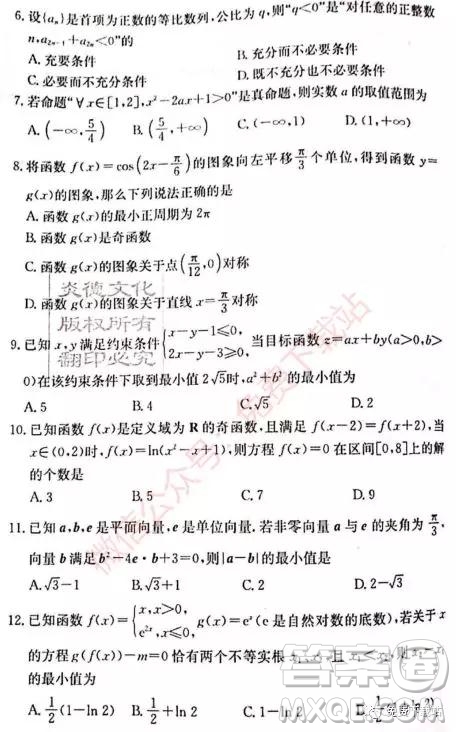 6.设{aₙ}是首项为正数的等比数列,公比为q,则“q<0”是“对任意的正整数
n,a₂ₙ₋₁+a₂ₙ<0”的
A.充要条件 B.充分而不必要条件
C.必要而不充分条件 D.既不充分也不必要条件
7.若命题“∀x∈[1,2],x²-2ax+1>0”是真命题,则实数a的取值范围为
A.(-∞,5/4) B.(5/4,+∞) C.(-∞,1) D.(1,+∞)
8.将函数f(x)=cos(2x-π/6)的图象向左平移π/3个单位,得到函数y=
g(x)的图象,那么下列说法正确的是
A.函数g(x)的最小正周期为2π
B.函数g(x)是奇函数
C.函数g(x)的图象关于点(π/12,0)对称
D.函数g(x)的图象关于直线x=π/3对称
炎德文化
版权所有
翻印必究
9.已知x,y满足约束条件{x-y-1≤0,2x-y-3≥0,当目标函数z=ax+by(a>0,b>
0)在该约束条件下取到最小值2√5时,a²+b²的最小值为
A.5 B.4 C.√5 D.2
10.已知函数f(x)是定义域为R的奇函数,且满足f(x-2)=f(x+2),当
x∈(0,2)时,f(x)=ln(x²-x+1),则方程f(x)=0在区间[0,8]上的解
的个数是
A.3 B.5 C.7 D.9
11.已知a,b,e是平面向量,e是单位向量.若非零向量a与e的夹角为π/3,
向量b满足b²-4e·b+3=0,则|a-b|的最小值是
A.√3-1 B.√3+1 C.2 D.2-√3
12.已知函数f(x)={x,x>0,e²ˣ,x≤0,g(x)=eˣ(e是自然对数的底数),若关于x
的方程g(f(x))-m=0恰有两个不等实根x₁,x₂,且x₁<x₂,则x₂-x₁
的最小值为
A.1/2(1-ln2) B.1/2+ln2 C.1-ln2 D.1/2
微信公众号:免费下载站
答案圈
MXQE.COM
免费下载站